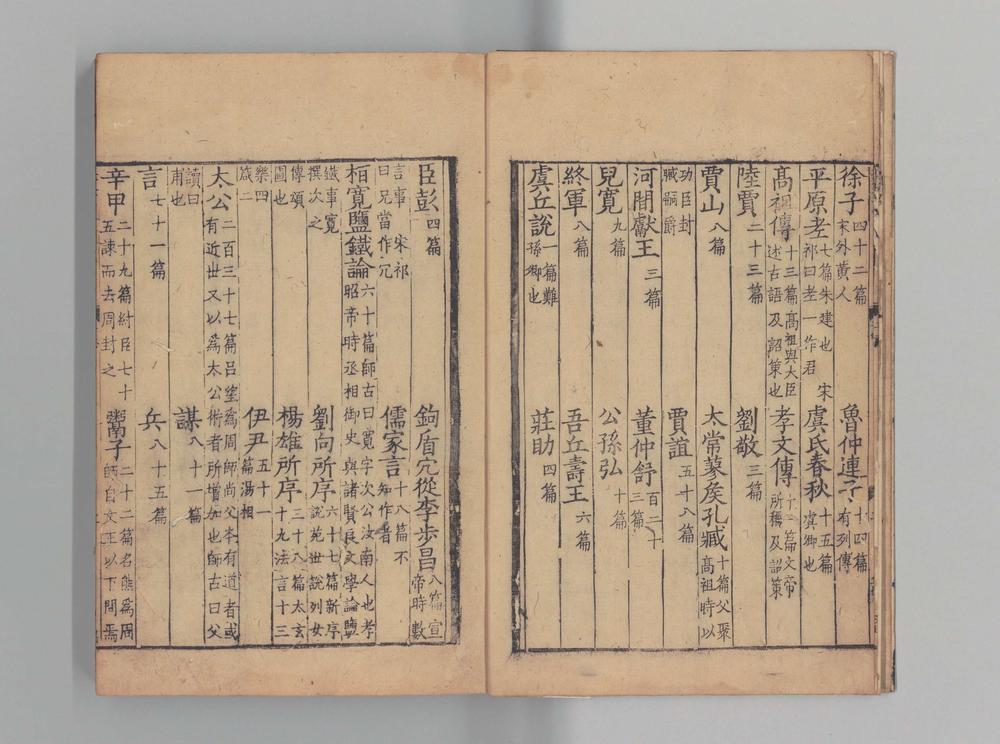 徐子四十二篇宋外黃人 魯仲連子十四篇有列傳
平原老七篇朱建也宋祁曰老一作君 虞氏春秋十五篇虞卿也
高祖傳十三篇高祖與大臣述古語及詔策也 孝文傳十一篇文帝所稱及詔策
陸賈二十三篇 劉敬三篇
賈山八篇 太常蓼矦孔臧十篇父聚高祖時以
功臣封職嗣爵 賈誼五十八篇
河間獻王三篇 董仲舒百二十三篇
兒寬九篇 公孫弘十篇
終軍八篇 吾丘壽王六篇
虞丘說一篇難孫卿也 莊助四篇
臣彭四篇 鉤盾冗從李步昌八篇宣帝時數
言事宋祁曰兄當作冗 儒家言十八篇不知作者
栢寬鹽鐵論六十篇師古曰寬字次公汝南人也孝昭帝時丞相御史與諸賢良文學論鹽
鐵事寬撰次之 劉向所序六十七篇新序說苑世說列女
傳頌圖也 楊雄所序三十八篇太玄十九法言十三
樂四箴二 伊尹五十一篇湯相
太公二百三十七篇呂望爲周師尚父本有道者或有近世又以爲太公術者所增加也師古曰父
讀曰甫也 謀八十一篇
言七十一篇 兵八十五篇
辛甲二十九篇紂臣七十五諫而去周封之 鬻子二十二篇名熊爲周師自文王以下問焉